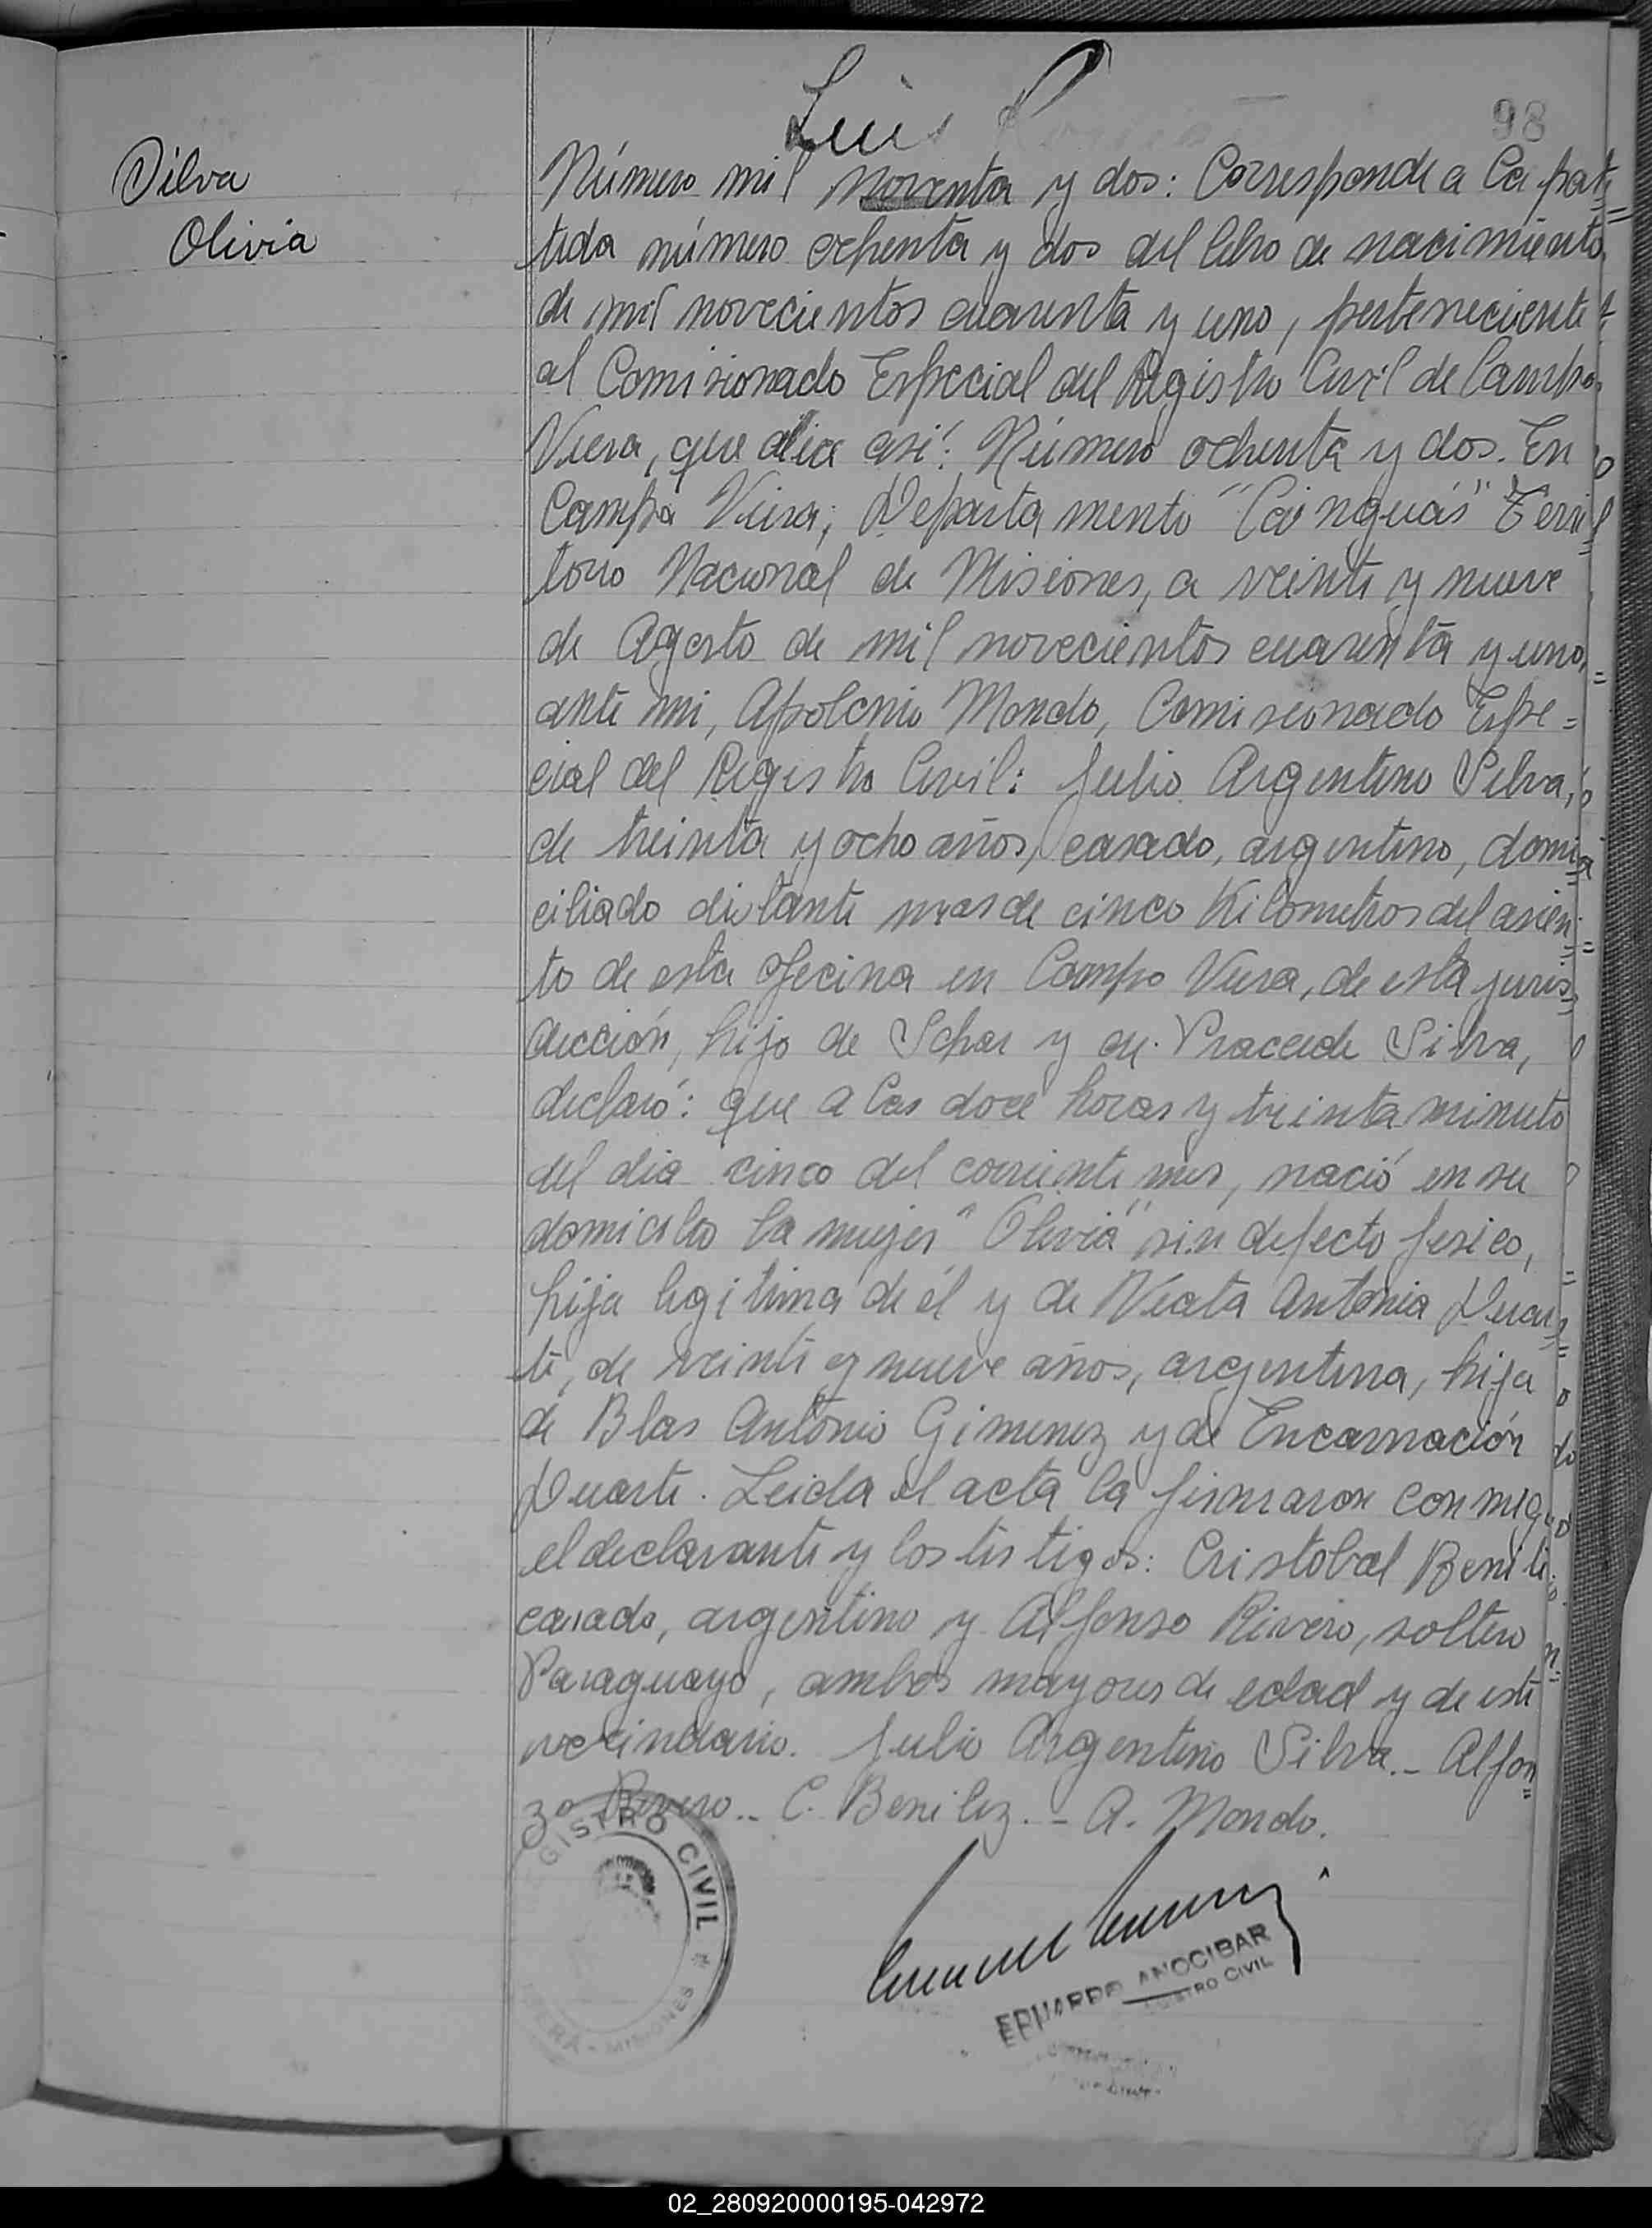 98
Luis
Silva
Olivia
Número mil noventa y dos: Corresponde a la par=
tida número ochenta y dos del libro de nacimiento
de mil novecientos cuarenta y uno, perteneciente
al Comisionado Especial del Registro Civil de Campo
Viera, que dice asi: Número ochenta y dos. En
Campo Viera, Departamento "Cainguás" Terri=
torio Nacional de Misiones, a veinte y nueve
de Agosto de mil novecientos cuarenta y uno,
ante mi, Apolonio Mondo, Comisionado Espe=
cial del Registro Civil: Julio Argentino Silva,
de treinta y ocho años, casado, argentino, domi=
ciliado distante mas de cinco Kilometros del asien=
to de esta oficina en Campo Viera, de esta juris=
dicción, hijo de y de Silva,
declaró: que a las doce horas y treinta minuto
del dia cinco del corriente mes, nació en su
domicilio la mujer "Olivia" sin defecto fisico,
hija legitima de él y de Antonia Duar=
te, de veinte y nueve años, argentina, hija
de Blas Antonio Gimenez y de Encarnación
Duarte. Leida el acta la firmaron conmigo
el declarante y los testigos: Cristobal
casado, argentino y Alfonso Rivero, soltero
Paraguayo, ambos mayores de edad y de este
vecindario. Julio Argentino Silva.- Alfon=
zo Rivero.- C. Benitez.- A. Mondo.
REGISTRO CIVIL
MISIONES
EDUARDO ANOCIBAR
REGISTRO CIVIL
02_280920000195-042972